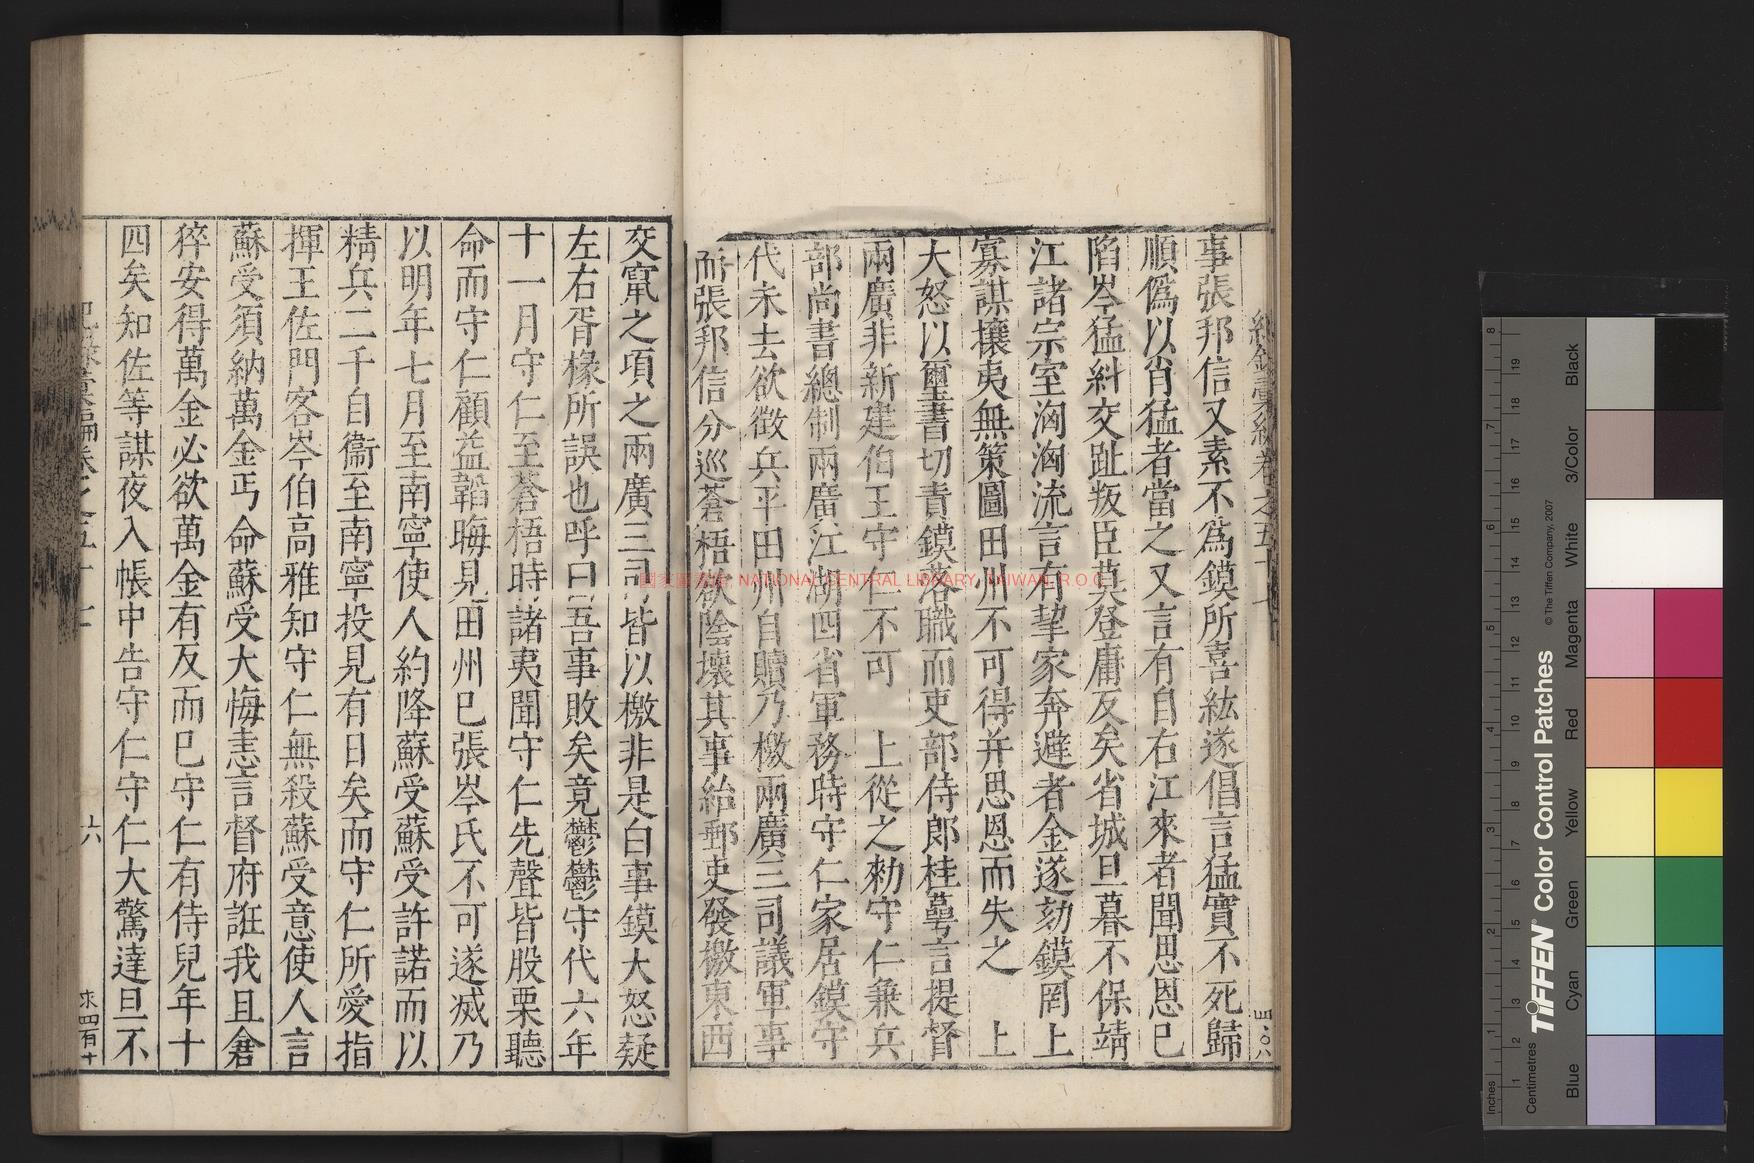 事張邦信又素不為鏌所喜紘遂倡言猛實不死歸
順僞以肖猛者當之又言有自右江來者聞思恩已
陷岑猛糾交趾叛臣莫登庸反矣省城旦暮不保靖
江諸宗室洶洶流言有挈家奔避者金遂劾鏌罔上
寡謀攘夷無策圖田州不可得并思恩而失之 上
大怒以璽書切責鏌落職而吏部侍郎桂萼言提督
兩廣非新建伯王守仁不可 上從之勑守仁兼兵
部尚書總制兩廣江湖四省軍務時守仁家居鏌守
代未去欲徵兵平田州自贖乃檄兩廣三司議軍事
而張邦信分巡蒼梧欲陰壞其事紿郵吏發檄東西
交竄之項之兩廣三司皆以檄非是白事鏌大怒疑
左右胥椽所誤也呼曰吾事敗矣竟鬱鬱守代六年
十一月守仁至蒼梧時諸夷聞守仁先聲皆股栗聽
命而守仁顧益韜晦見田州已張岑氏不可遂滅乃
以明年七月至南寧使人約降蘇受蘇受許諾而以
精兵二千自衞至南寧投見有日矣而守仁所愛指
揮王佐門客岑伯高雅知守仁無殺蘇受意使人言
蘇受須納萬金丐命蘇受大悔恚言督府誑我且倉
猝安得萬金必欲萬金有反而巳守仁有侍兒年十
四矣知佐等謀夜入帳中告守仁守仁大驚達旦不
十六
國家圖書館 NATIONAL CENTRAL LIBRARY, TAIWAN, R.O.C
TIFFEN Color Control Patches
© The Tiffen Company, 2007
Inches
Centimetres
Blue
Cyan
Green
Yellow
Red
Magenta
White
3/Color
Black